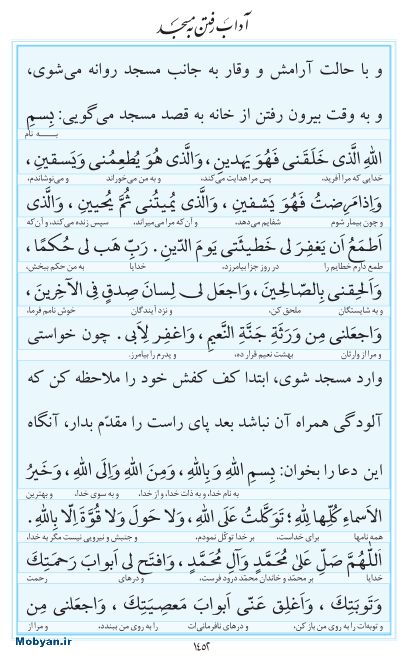 آداب رفتن به مسجد
و با حالت آرامش و وقار به جانب مسجد روانه می‌شوی،
و به وقت بیرون رفتن از خانه به قصد مسجد می‌گویی: بِسمِ
بـــه نام
اللهِ الَّذی خَلَقَنی فَهُوَ یَهدینِ، وَالَّذی هُوَ یُطعِمُنی وَیَسقینِ،
خدایی که مرا آفرید، پس مرا هدایت می‌کند، و به من می‌خوراند و می‌نوشاندم،
وَاِذامَرِضتُ فَهُوَ یَشفینِ، وَالَّذی یُمیتُنی ثُمَّ یُحیینِ، وَالَّذی
و چون بیمار شوم شفایم می‌دهد، و آن‌که مرا می‌میراند، سپس زنده می‌کند، و آن‌که
اَطمَعُ اَن یَغفِرَ لی خَطیئَتی یَومَ الدّینِ. رَبِّ هَب لی حُکمًا،
طمع دارم خطایم را در روز جزا بیامرزد، خدایا به من حکم ببخش،
وَاَلحِقنی بِالصّالِحینَ، وَاجعَل لی لِسانَ صِدقٍ فِی الآخِرینَ،
و به شایستگان ملحق کن، و نزد آیندگان خوش نامم فرما،
وَاجعَلنی مِن وَرَثَةِ جَنَّةِ النَّعیمِ، وَاغفِر لِاَبی. چون خواستی
و مرا از وارثان بهشت نعیم قرار ده، و پدرم را بیامرز.
وارد مسجد شوی، ابتدا کف کفش خود را ملاحظه کن که
آلودگی همراه آن نباشد بعد پای راست را مقدّم بدار، آنگاه
این دعا را بخوان: بِسمِ اللهِ وَبِاللهِ، وَمِنَ اللهِ وَاِلَی اللهِ، وَخَیرُ
به نام خدا، و به ذات خدا، و از خدا، و به سوی خدا، و بهترین
الاَسماءِ کُلِّها لِلّٰهِ؛ تَوَکَّلتُ عَلَی اللهِ، وَلا حَولَ وَلا قُوَّةَ اِلّا بِاللهِ.
همه نامها برای خداست، بر خدا توکّل نمودم، و جنبش و نیرویی نیست مگر به خدا،
اَللّٰهُمَّ صَلِّ عَلیٰ مُحَمَّدٍ وَآلِ مُحَمَّدٍ، وَافتَح لی اَبوابَ رَحمَتِکَ
خدایا بر محمّد و خاندان محمّد درود فرست، و درهای رحمت
وَتَوبَتِکَ، وَاَغلِق عَنّی اَبوابَ مَعصِیَتِکَ، وَاجعَلنی مِن
و توبه‌ات را به روی من باز کن، و درهای نافرمانی‌ات را به روی من ببندد، و مرا از
۱۴۵۲
Mobyan.ir